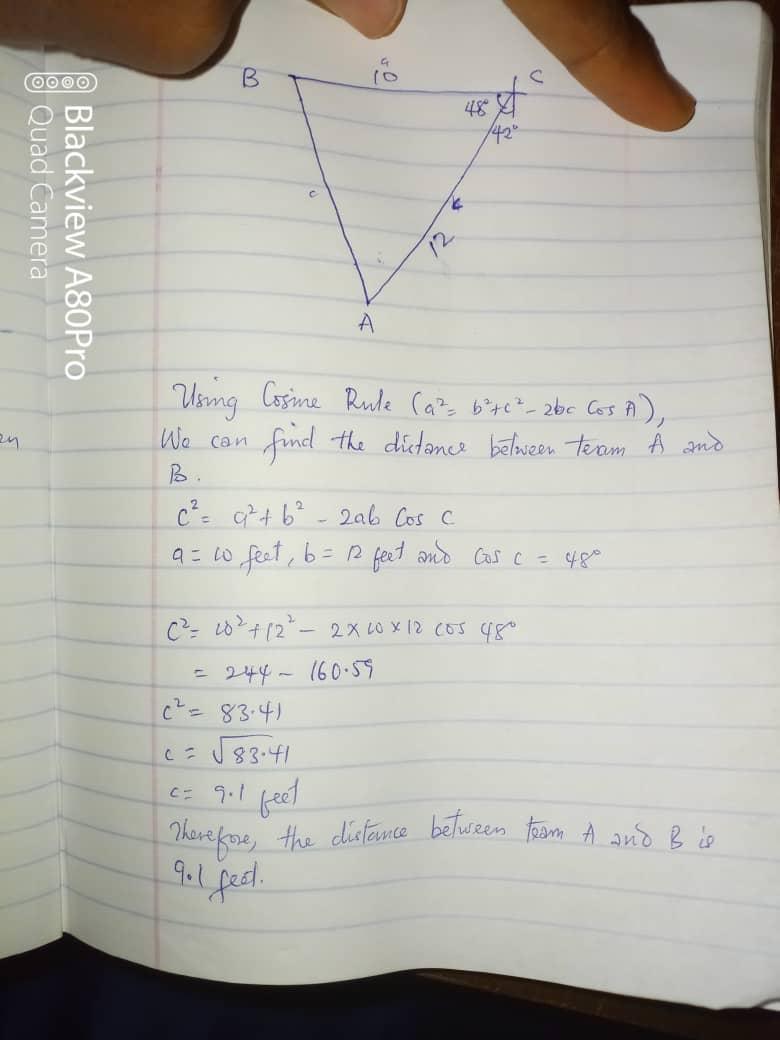 Blackview A80Pro
Quad Camera
a
B 10 C
48°
42°
c
12
A
Using Cosine Rule (a²= b²+c²- 2bc Cos A),
We can find the distance between team A and
B.
c² = a² + b² - 2ab Cos C
a = 10 feet, b = 12 feet and Cos C = 48°
C² = 10² + 12² - 2 × 10 × 12 cos 48°
= 244 - 160.59
c² = 83.41
c = √83.41
c = 9.1 feet
Therefore, the distance between team A and B is
9.1 feet.